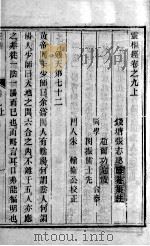 靈樞經卷之九上
錢塘張志聰隱菴集註
同學
閔振儒士先
門人朱 輪 公校正
通天第七十二
黃帝問于少師曰余嘗聞人有陰陽何謂陰人何謂
陽人少師曰天地之間六合之內不離于五人亦應
之非徒一陰一陽而已也而略言耳口弗能徧明